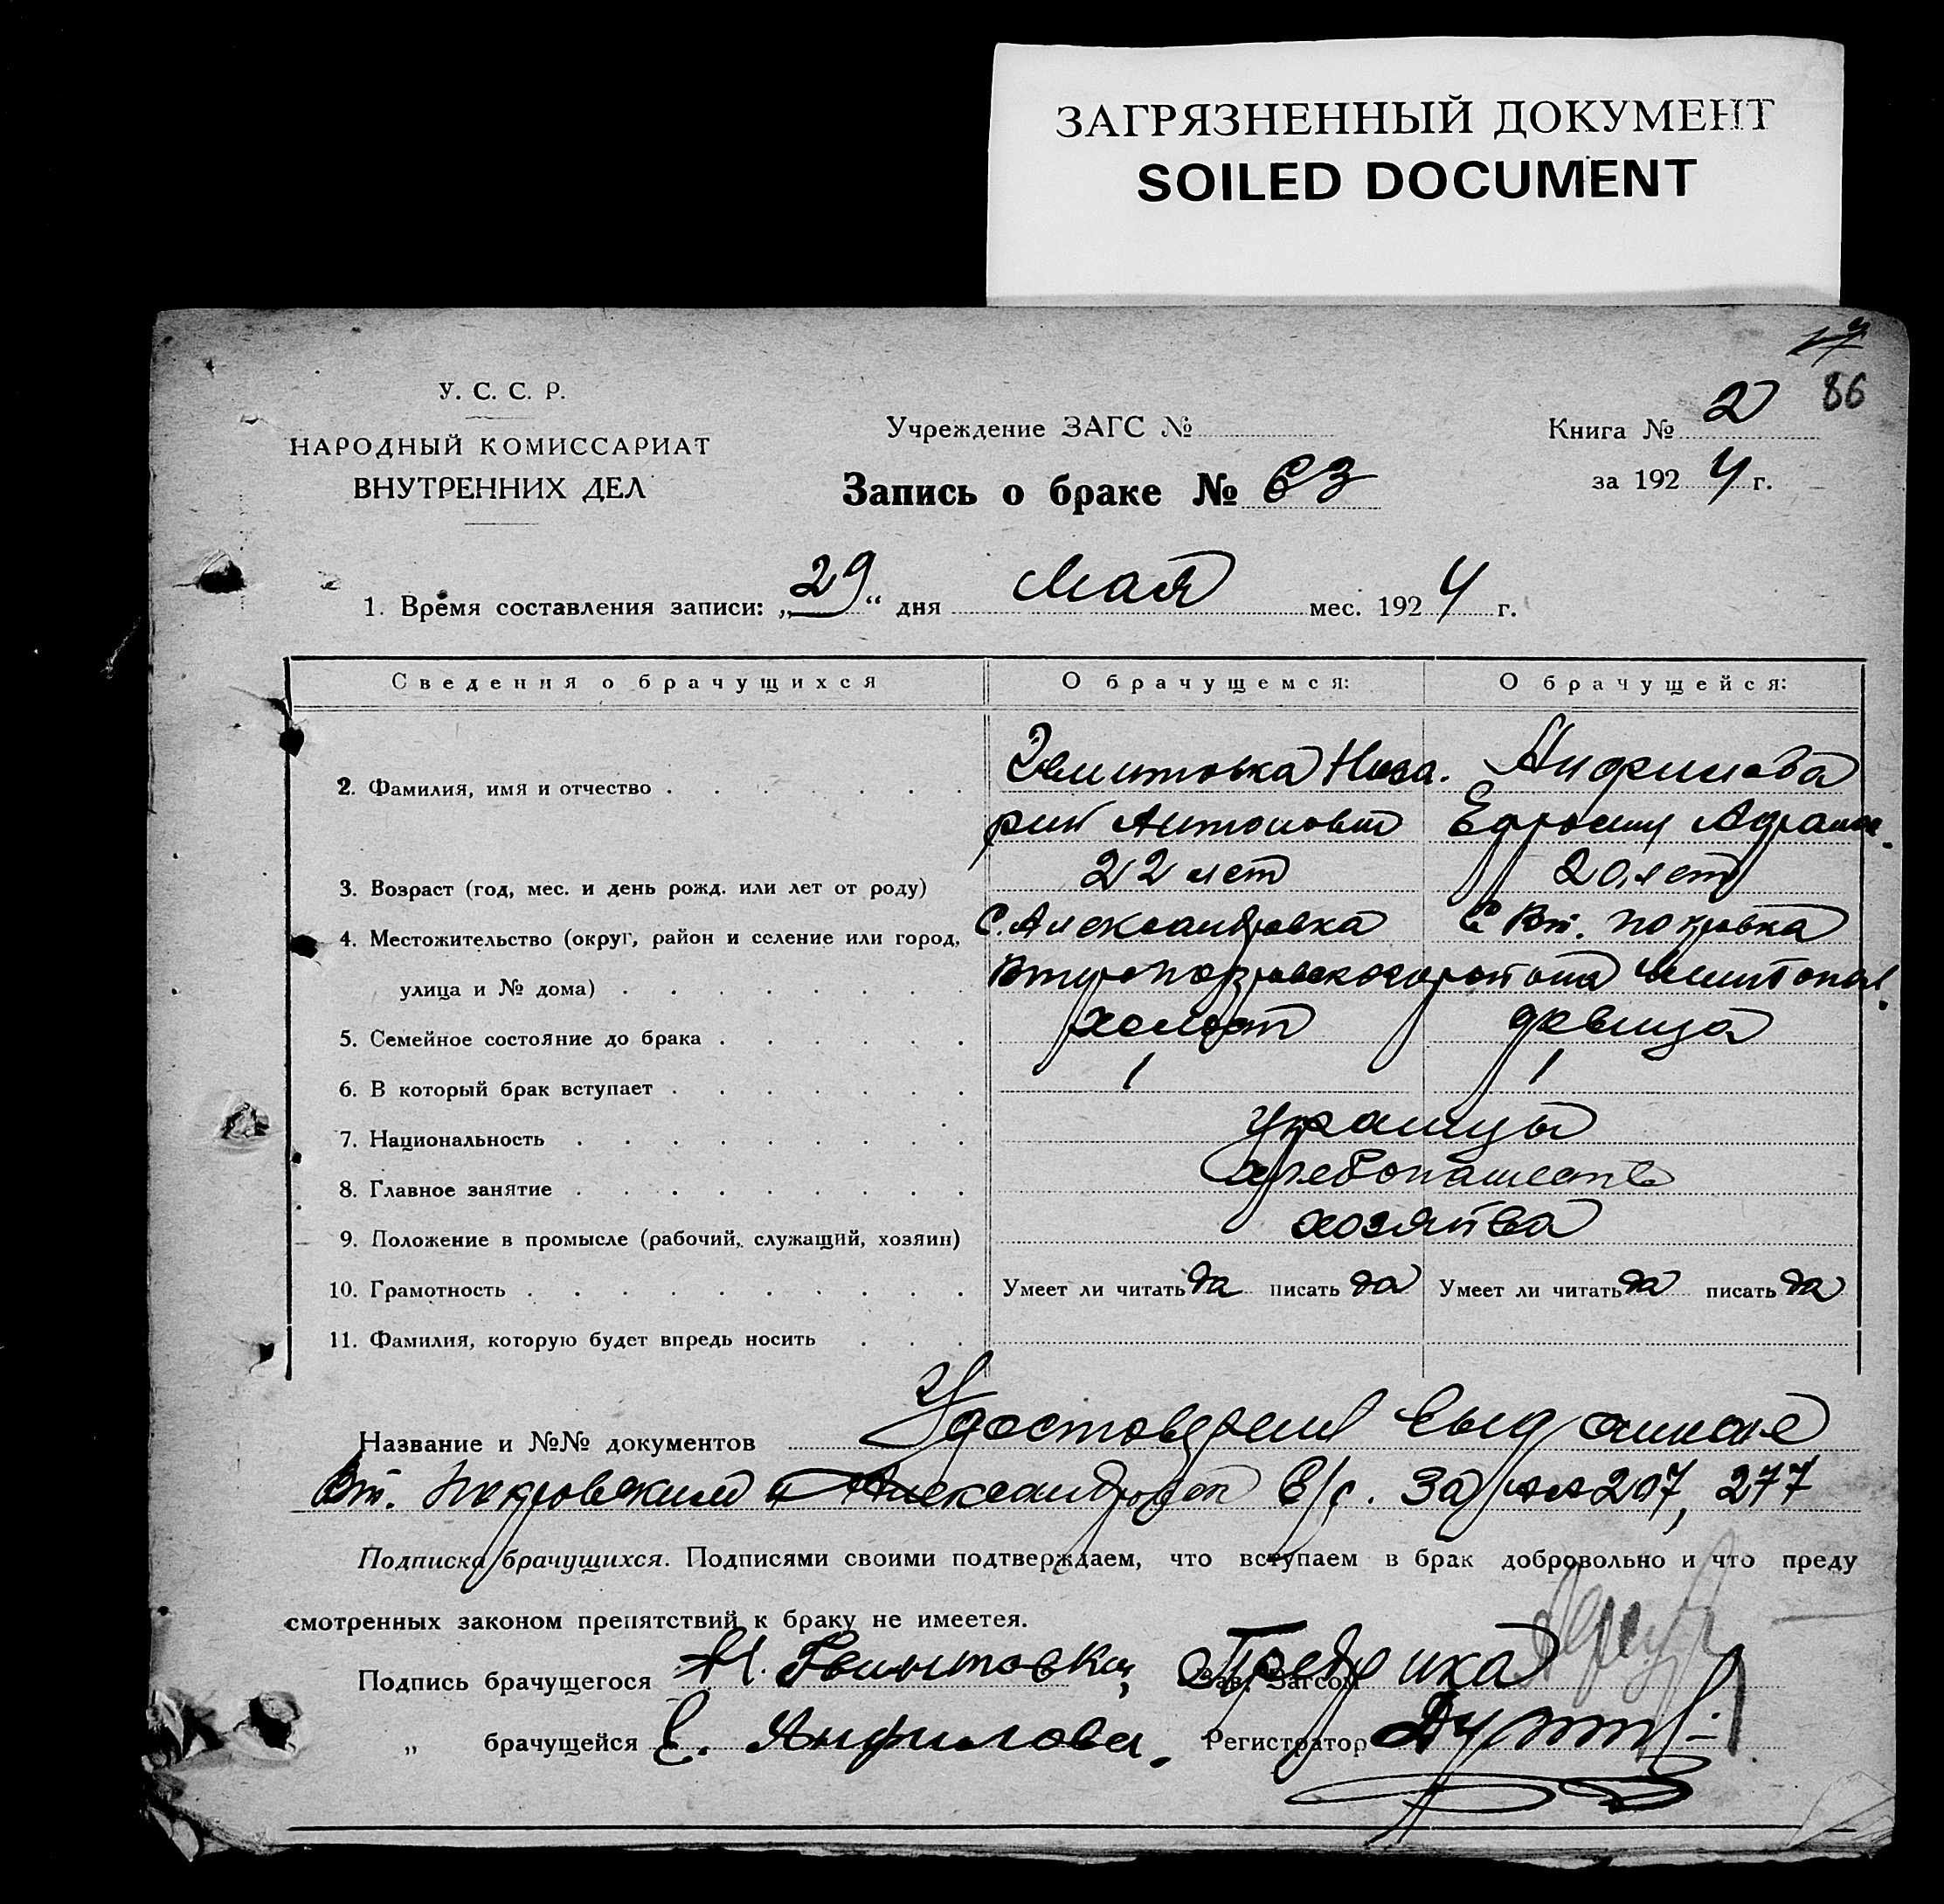 ЗАГРЯЗНЕННЫЙ ДОКУМЕНТ
SOILED DOCUMENT
86
У. С. С. Р.
НАРОДНЫЙ КОМИССАРИАТ
ВНУТРЕННИХ ДЕЛ
Учреждение ЗАГС №
Запись о браке № 63
Книга № 2
за 1924 г.
1. Время составления записи: „29“ дня Мая мес. 1924 г.
Сведения о брачущихся О брачущемся: О брачущейся:
2. Фамилия, имя и отчество Анфилова
Антонович
3. Возраст (год, мес. и день рожд. или лет от роду) 22 лет 20 лет
4. Местожительство (округ, район и селение или город, С. Александровка С Вт. Покровка
улица и № дома)
5. Семейное состояние до брака холост девица
6. В который брак вступает 1 1
7. Национальность украинцы
8. Главное занятие хлебопашеств
9. Положение в промысле (рабочий, служащий, хозяин) хозяйва
10. Грамотность Умеет ли читать да писать да Умеет ли читать да писать да
11. Фамилия, которую будет впредь носить
Название и №№ документов Удостоверения
Вт. Покровским 207, 277
Подписка брачущихся. Подписями своими подтверждаем, что вступаем в брак добровольно и что преду
смотренных законом препятствий к браку не имеется.
Подпись брачущегося Н. Гвинтовка, Зав. Загсом
„ брачущейся Е. Анфилова. Регистратор